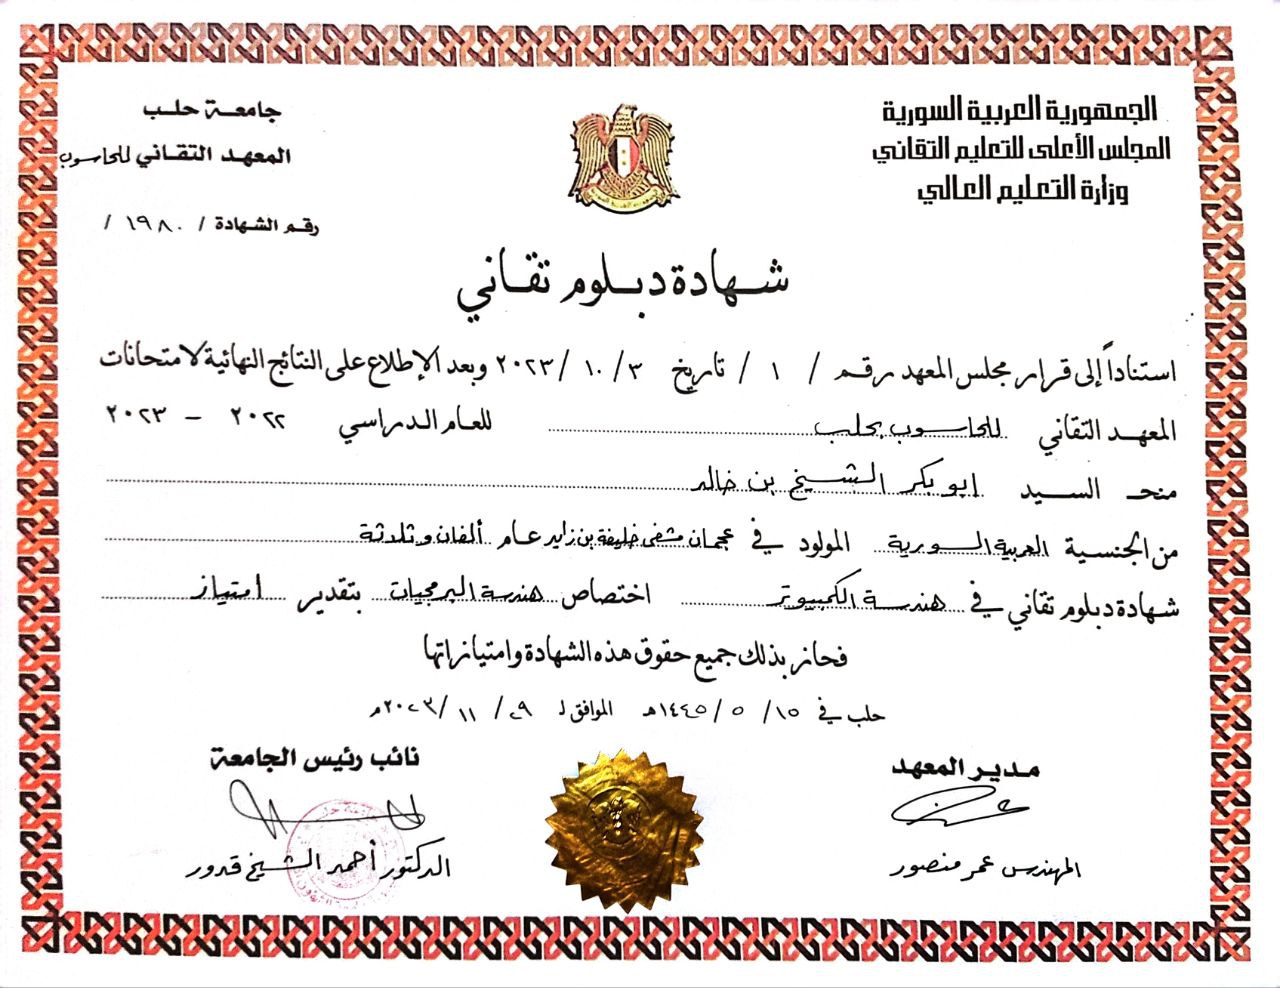 الجمهورية العربية السورية
المجلس الأعلى للتعليم التقاني
وزارة التعليم العالي
جامعة حلب
المعهد التقاني للحاسوب
رقم الشهادة / ١٩٨٠ /
شهادة دبلوم تقاني
استناداً إلى قرار مجلس المعهد رقم / ١ / تاريخ ٣ / ١٠ / ٢٠٢٣ وبعد الإطلاع على النتائج النهائية لامتحانات
المعهد التقاني للحاسوب بحلب للعام الدراسي ٢٠٢٢ - ٢٠٢٣
منح السيد ابو بكر الشيخ بن خالد
من الجنسية العربية السورية المولود في عجمان مشفى خليفة بن زايد عام ألفان وثلاثة
شهادة دبلوم تقاني في هندسة الكمبيوتر اختصاص هندسة البرمجيات بتقدير امتياز
فحاز بذلك جميع حقوق هذه الشهادة وامتيازاتها
حلب في ١٥ / ٥ / ١٤٤٥هـ الموافق لـ ٢٩ / ١١ / ٢٠٢٣م
مدير المعهد
المهندس عمر منصور
نائب رئيس الجامعة
الدكتور أحمد الشيخ قدور